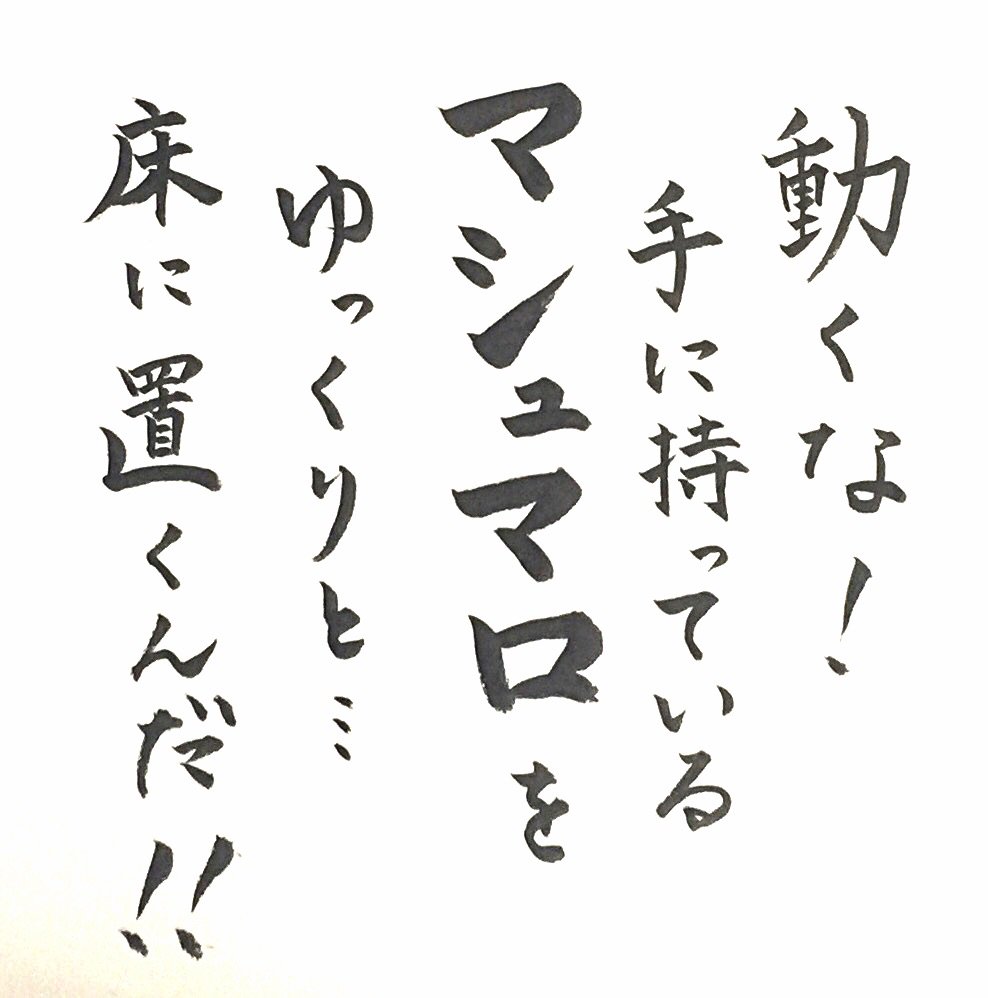 動くな！
手に持っている
マシュマロを
ゆっくりと…
床に置くんだ!!